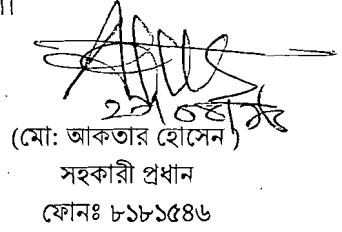 (মো: আকতার হোসেন )
সহকারী প্রধান
ফোনঃ ৮১৮১৫৪৬